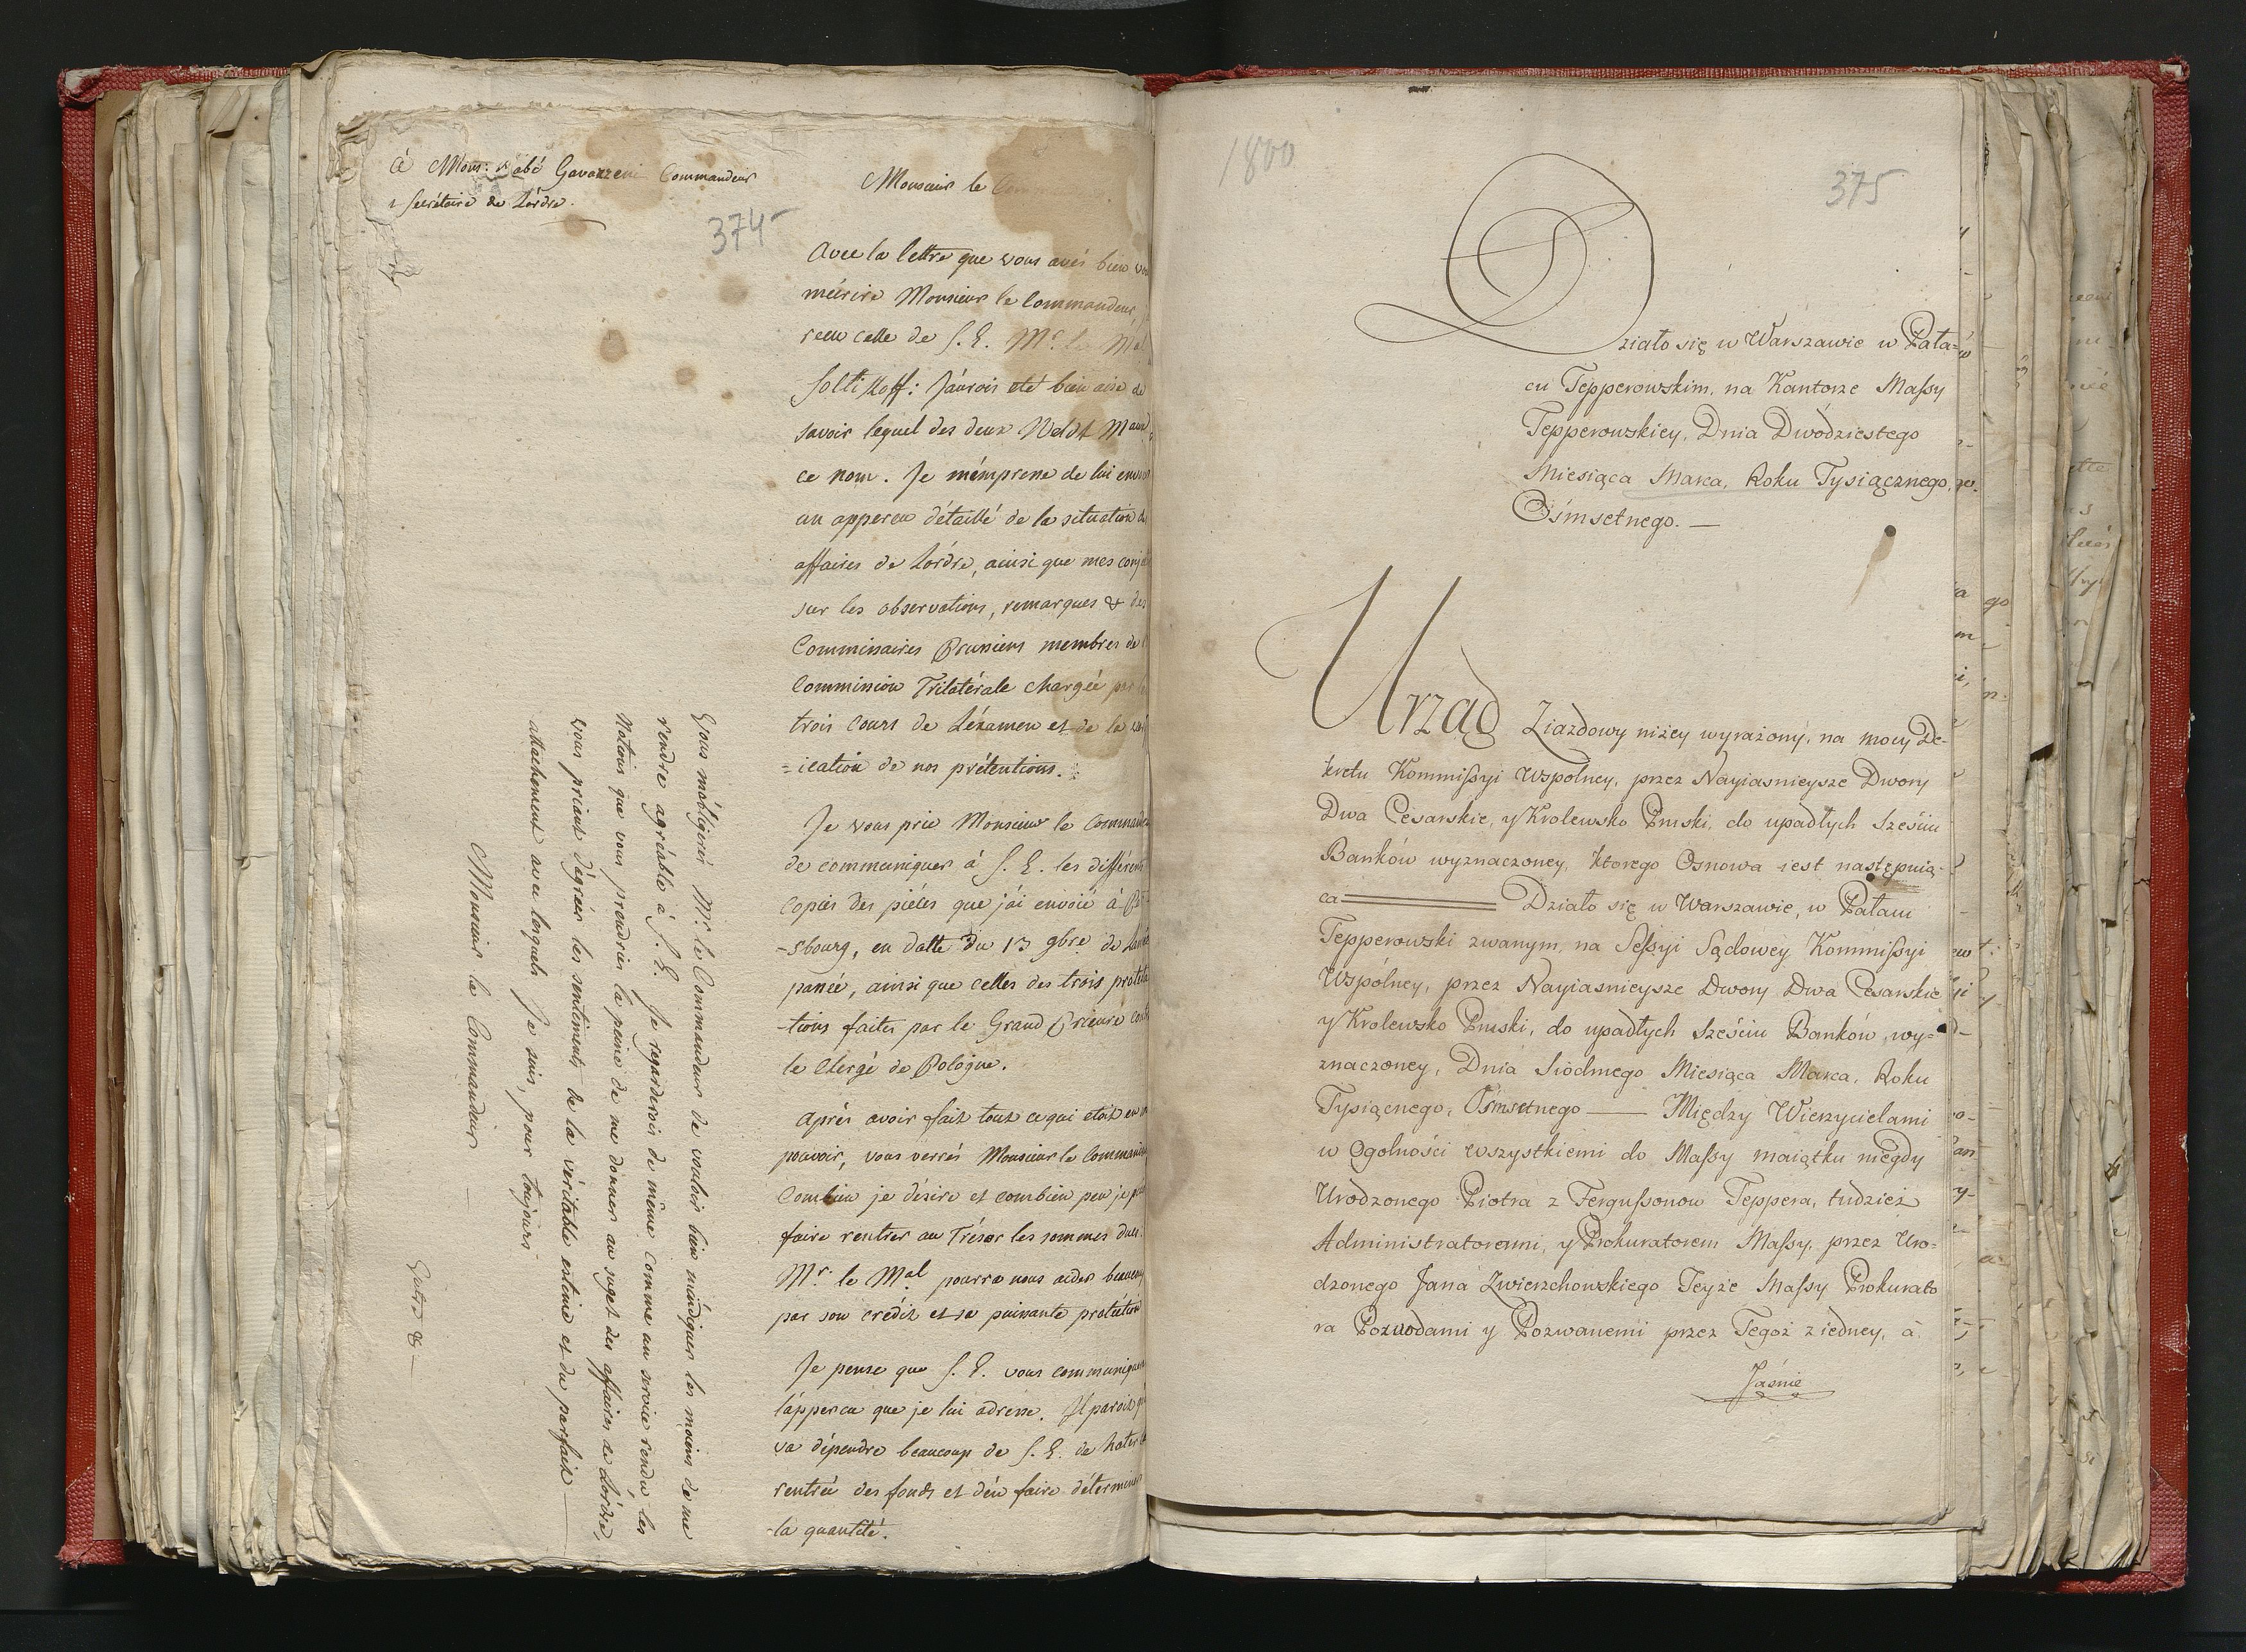 à Mons: l'abé Gavazzeni Commandeur
& Secrétaire de L'órdre.
374
Monsieur le
Avec la lettre que vous avés bien
mécrire Monsieur le Commandeur,
recu celle de S. E. Mr. le Mal
Soltikoff: J'aurois eté bien aise de
savoir lequel des deux
ce nom. Je m'émprene de lui
un appercu détaillé de la situation
affaires de L'órdre, ainsi que mes
sur les observations, remarques & des
Commissaires Prussiens membres de
Commission Trilatérale chargée par
trois Cours de L'éxamen et de la
=ication de nos prétentions.
Je vous prie Monsieur le
de communiquer à S. E. les différents
copies des piéces que j'ái envoié à
-sbourg, en datte du 13 9bre de
passée, ainsi que celles des trois
-tions faites par le Grand Prieuré
le Clergé de Pologne.
Après avoir fait tout ce qui etoit en
pouvoir, vous verrés Monsieur le
Combien je désire et combien peu je
faire rentrer au Trésor les sommes dues.
Mr. le Mal pourra nous aider beaucoup
par son crédit et sa puissante protéction
Je pense que S. E. vous
l'áppercu que je lui adresse. Il paroit
va dépendre beaucoup de S. E. de hater
rentrée des fonds et d'én faire
la quantité.
Vous m'obligerés Mr. le Commandeur de vouloir bien m'indiquer les moiens de me
rendre agréable à S. E. Je regarderois de même comme un service rendu les
Notions que vous prendriés la peine de me donner au suget des affaires de L'órdre,
vous priant d'égréer les sentiments de la véritable estime et du parfait
attachement avec lesquels Je suis, pour toujours
Monsieur le Commandeur
1800
375
Działo się w Warszawie w Pała=
cu Tepperowskim, na Kantorze Massy
Tepperowskiey, Dnia Dwódziestego
Miesiąca Marca, Roku Tysiącznego,
Ósmsetnego. —
Urząd Ziazdowy niżey wyrażony, na mocy De-
kretu Kommissyi Wspolney, przez Nayiasnieysze Dwory
Dwa Cesarskie, y Krolewsko Pruski, do upadłych Sześciu
Banków wyznaczoney, ktorego Osnowa iest następuią-
ca ═══ Działo się w Warszawie, w Pałacu
Tepperowski zwanym, na Sessyi Sądowey Kommissyi
Wspólney, przez Nayiasnieysze Dwory Dwa Cesarskie
y Krolewsko Pruski, do upadłych Sześciu Banków, wy=
znaczoney, Dnia Siódmego Miesiąca Marca, Roku
Tysiącnego, Ósmsetnego —— Między Wierzycielami
w Ogolności wszystkiemi do Massy maiątku niegdy
Urodzonego Piotra z Fergussonow Teppera, tudzież
Administratorami, y Prokuratorem Massy, przez Uro=
dzonego Jana Zwierzchowskiego Teyże Massy Prokurato
ra Pozwodami y Pozwanemi przez Tegoż z iedney, à
Jaśnie